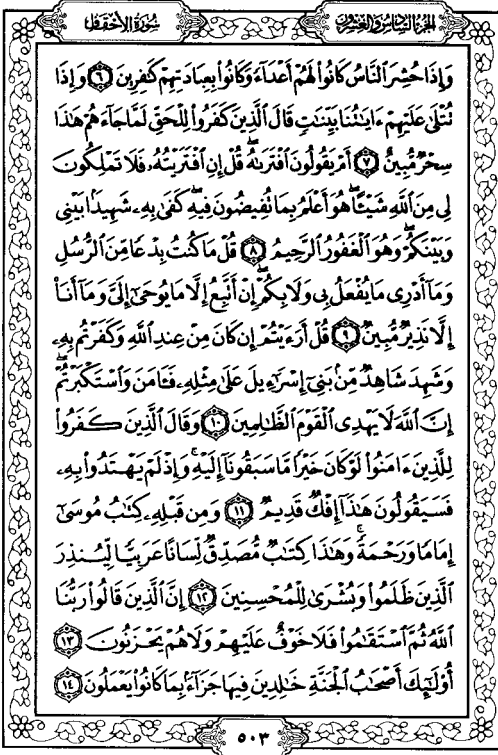 الجزء السادس والعشرون
سورة الأحقاف
وَإِذَا حُشِرَ ٱلنَّاسُ كَانُواْ لَهُمْ أَعْدَآءً وَكَانُواْ بِعِبَادَتِهِمْ كَٰفِرِينَ ٦ وَإِذَا
تُتْلَىٰ عَلَيْهِمْ ءَايَٰتُنَا بَيِّنَٰتٍ قَالَ ٱلَّذِينَ كَفَرُواْ لِلْحَقِّ لَمَّا جَآءَهُمْ هَٰذَا
سِحْرٌ مُّبِينٌ ٧ أَمْ يَقُولُونَ ٱفْتَرَىٰهُ ۖ قُلْ إِنِ ٱفْتَرَيْتُهُۥ فَلَا تَمْلِكُونَ
لِى مِنَ ٱللَّهِ شَيْـًٔا ۖ هُوَ أَعْلَمُ بِمَا تُفِيضُونَ فِيهِ ۖ كَفَىٰ بِهِۦ شَهِيدًۢا بَيْنِى
وَبَيْنَكُمْ ۖ وَهُوَ ٱلْغَفُورُ ٱلرَّحِيمُ ٨ قُلْ مَا كُنتُ بِدْعًا مِّنَ ٱلرُّسُلِ
وَمَآ أَدْرِى مَا يُفْعَلُ بِى وَلَا بِكُمْ ۖ إِنْ أَتَّبِعُ إِلَّا مَا يُوحَىٰٓ إِلَىَّ وَمَآ أَنَا۠
إِلَّا نَذِيرٌ مُّبِينٌ ٩ قُلْ أَرَءَيْتُمْ إِن كَانَ مِنْ عِندِ ٱللَّهِ وَكَفَرْتُم بِهِۦ
وَشَهِدَ شَاهِدٌ مِّنۢ بَنِىٓ إِسْرَٰٓءِيلَ عَلَىٰ مِثْلِهِۦ فَـَٔامَنَ وَٱسْتَكْبَرْتُمْ ۖ
إِنَّ ٱللَّهَ لَا يَهْدِى ٱلْقَوْمَ ٱلظَّٰلِمِينَ ١٠ وَقَالَ ٱلَّذِينَ كَفَرُواْ
لِلَّذِينَ ءَامَنُواْ لَوْ كَانَ خَيْرًا مَّا سَبَقُونَآ إِلَيْهِ ۚ وَإِذْ لَمْ يَهْتَدُواْ بِهِۦ
فَسَيَقُولُونَ هَٰذَآ إِفْكٌ قَدِيمٌ ١١ وَمِن قَبْلِهِۦ كِتَٰبُ مُوسَىٰٓ
إِمَامًا وَرَحْمَةً ۚ وَهَٰذَا كِتَٰبٌ مُّصَدِّقٌ لِّسَانًا عَرَبِيًّا لِّيُنذِرَ
ٱلَّذِينَ ظَلَمُواْ وَبُشْرَىٰ لِلْمُحْسِنِينَ ١٢ إِنَّ ٱلَّذِينَ قَالُواْ رَبُّنَا
ٱللَّهُ ثُمَّ ٱسْتَقَٰمُواْ فَلَا خَوْفٌ عَلَيْهِمْ وَلَا هُمْ يَحْزَنُونَ ١٣
أُوْلَٰٓئِكَ أَصْحَٰبُ ٱلْجَنَّةِ خَٰلِدِينَ فِيهَا جَزَآءًۢ بِمَا كَانُواْ يَعْمَلُونَ ١٤
٥٠٣